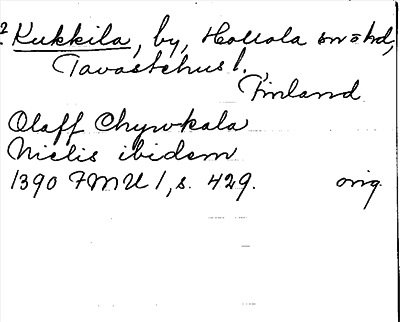 ? Kukkila, by, Hollola sn o hd,
Tavastehus l.
Finland
Olaff Chywkala
Nielis ibidem
1390 FMU 1, s. 429. orig.